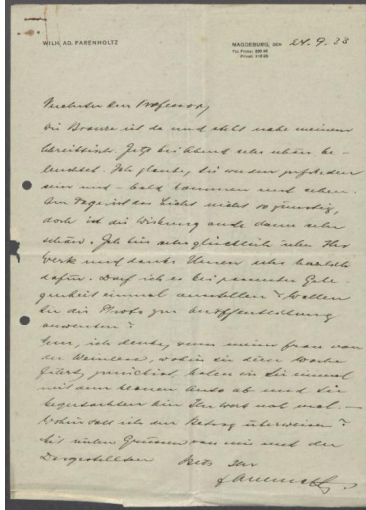 WILH. AD. FARENHOLTZ
MAGDEBURG, DEN 24.9.33
Verehrter Herr Professor,
die Bronze ist da und steht nahe meinem
Schreibtisch. Jetzt bei Abend sehr schön be-
leuchtet. Ich glaube, Sie werden zufrieden
sein und bald kommen und sehen.
Am Tage ist das Licht nicht so günstig,
doch ist die Wirkung auch dann sehr
schön. Ich bin sehr glücklich über Ihr
Werk und danke Ihnen sehr herzlich
dafür. Darf ich es bei passender Gele-
genheit einmal ausstellen? Wollen
Sie die Photos zur Veröffentlichung
anwenden?
ich denke, wenn meine Frau von
der, wohin sie diese Woche
fährt, zurück ist, holen wir Sie einmal
mit dem blauen Auto ab und Sie
Ihr Werk noch mal.—
Wohin soll ich den Betrag überweisen?
Mit vielen Grüssen von mir und der
Dargestellten stets Ihr
Farenholtz